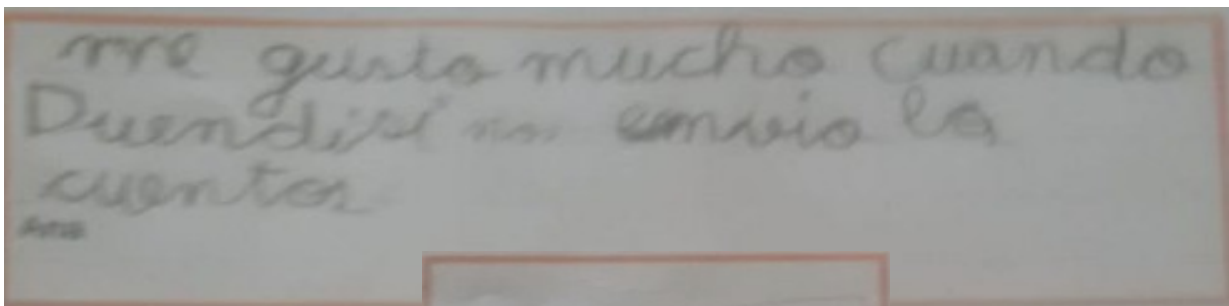 me gusto mucho cuando
Duendisi nos envio los
cuentos